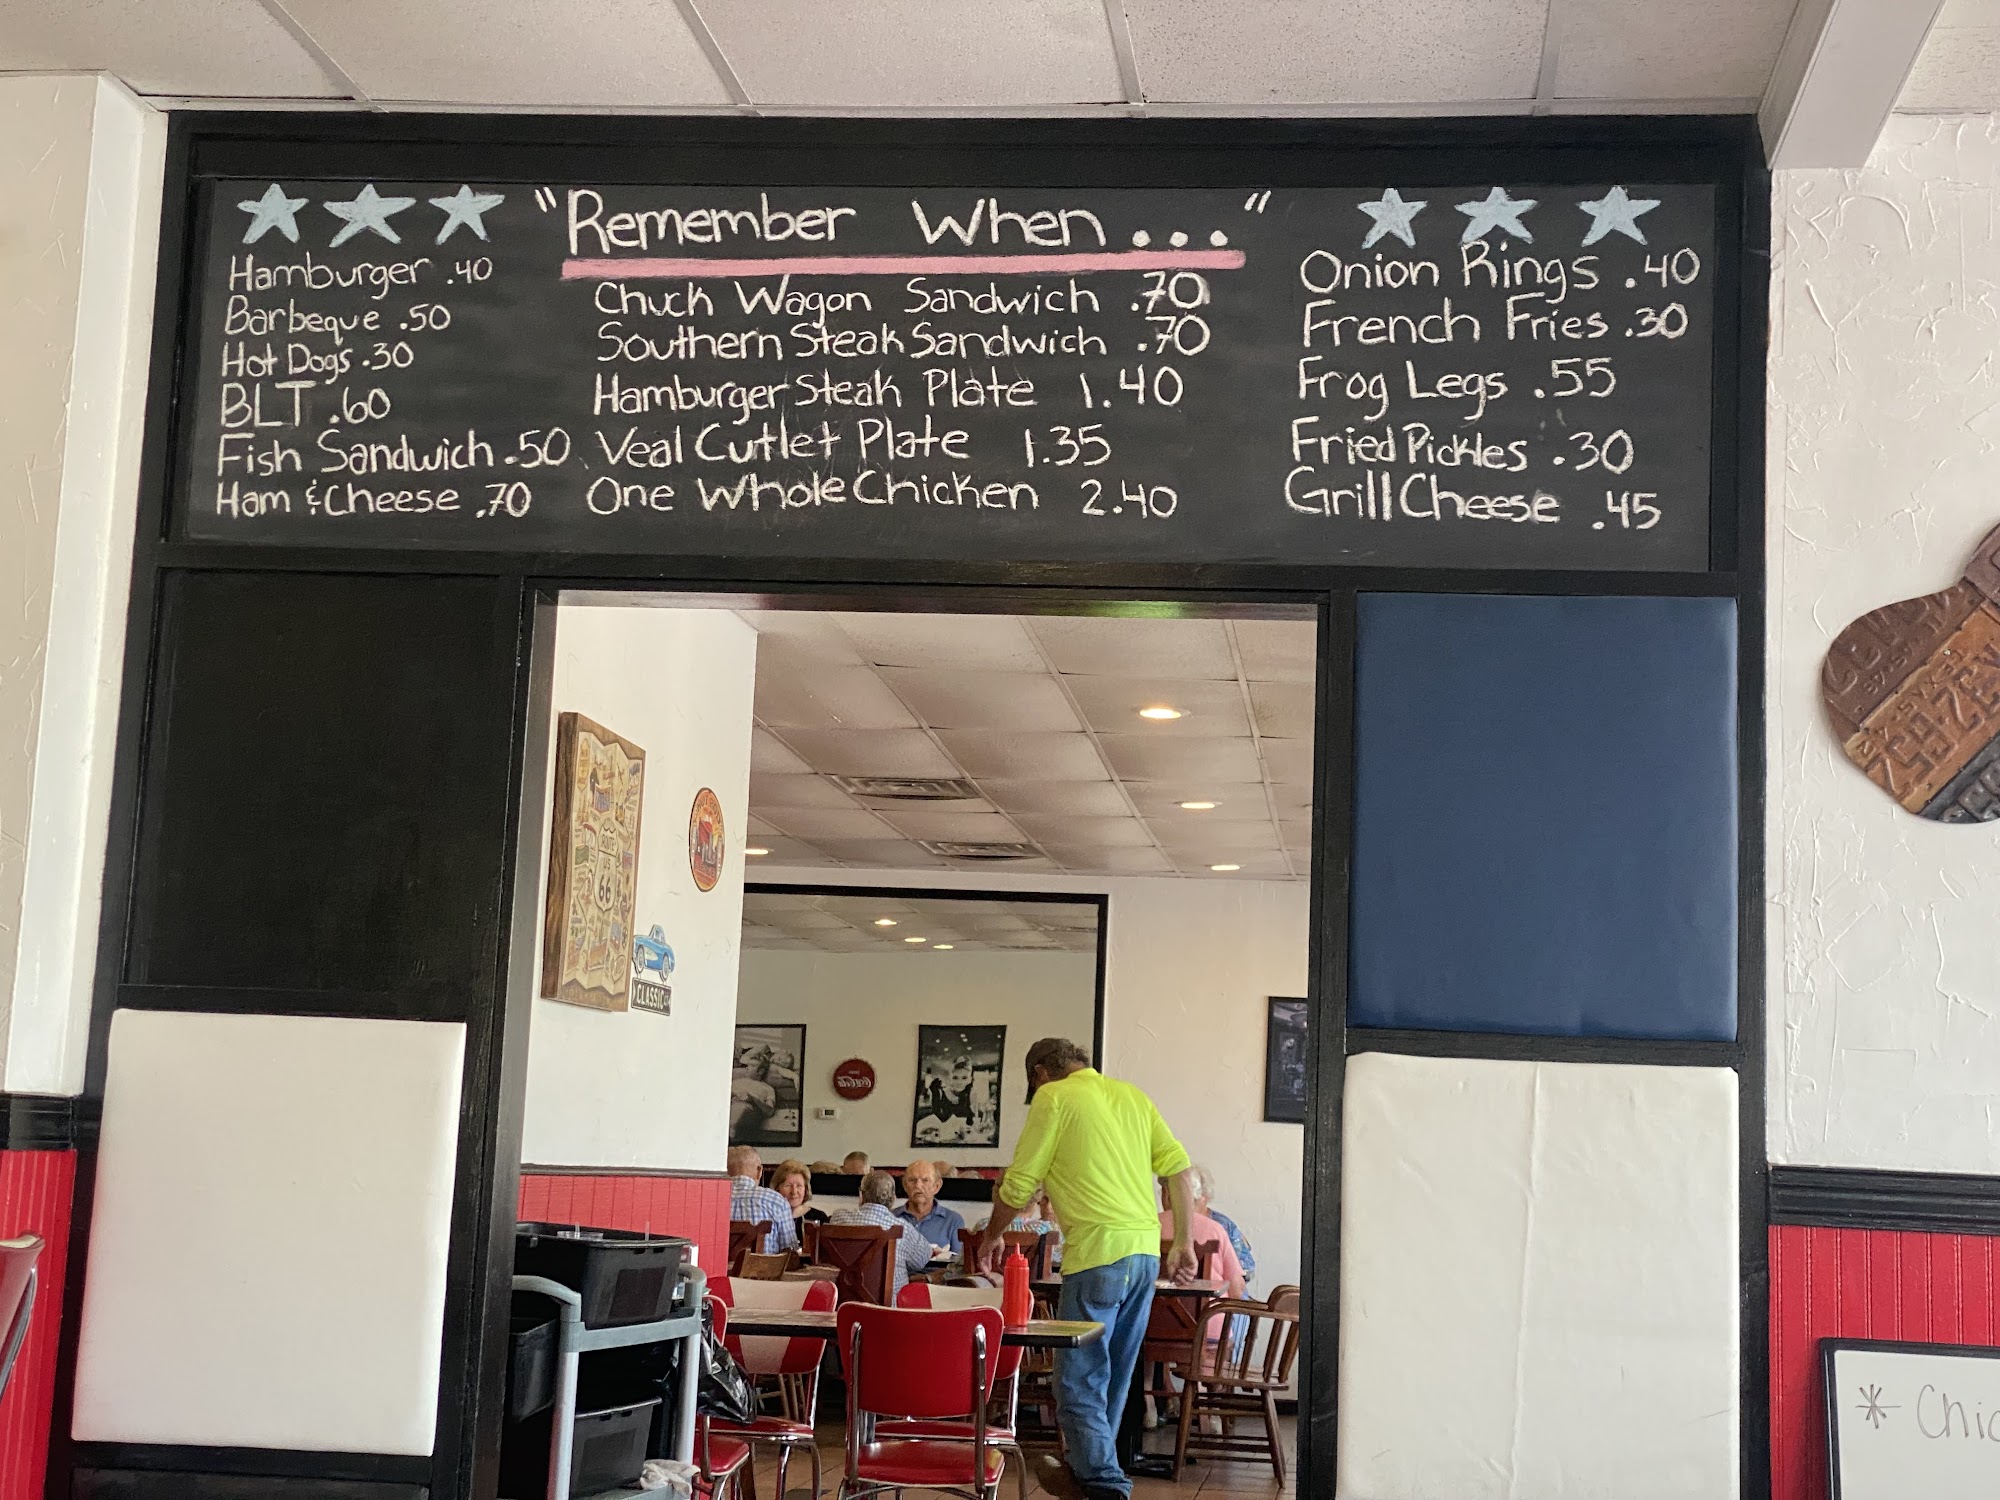 "Remember When..."
Hamburger .40
Barbeque .50
Hot Dogs .30
BLT .60
Fish Sandwich .50
Ham & Cheese .70
Chuck Wagon Sandwich .70
Southern Steak Sandwich .70
Hamburger Steak Plate 1.40
Veal Cutlet Plate 1.35
One Whole Chicken 2.40
Onion Rings .40
French Fries .30
Frog Legs .55
Fried Pickles .30
Grill Cheese .45
ROUTE
US
66
CLASSIC
Coca-Cola
* Chic